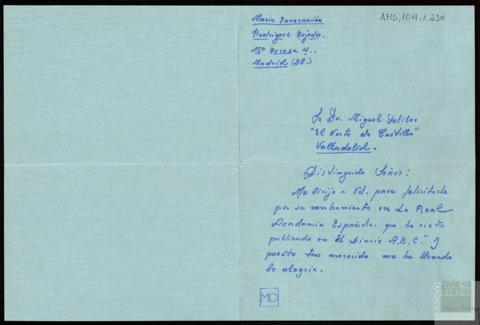 María Encarnación
Rodríguez Tejedo.
Mª Teresa 4..
Madrid (28.)
AMD,104,1,230
Sr Dn. Miguel Delibes
"El Norte de Castilla"
Valladolid.
Distinguido Señor:
Me dirijo a Vd. para felicitarle
por su nombramiento en La Real
Academia Española, que he visto
publicado en El Diario A.B.C." y
puesto tan merecido me ha llenado
de alegría.
MD